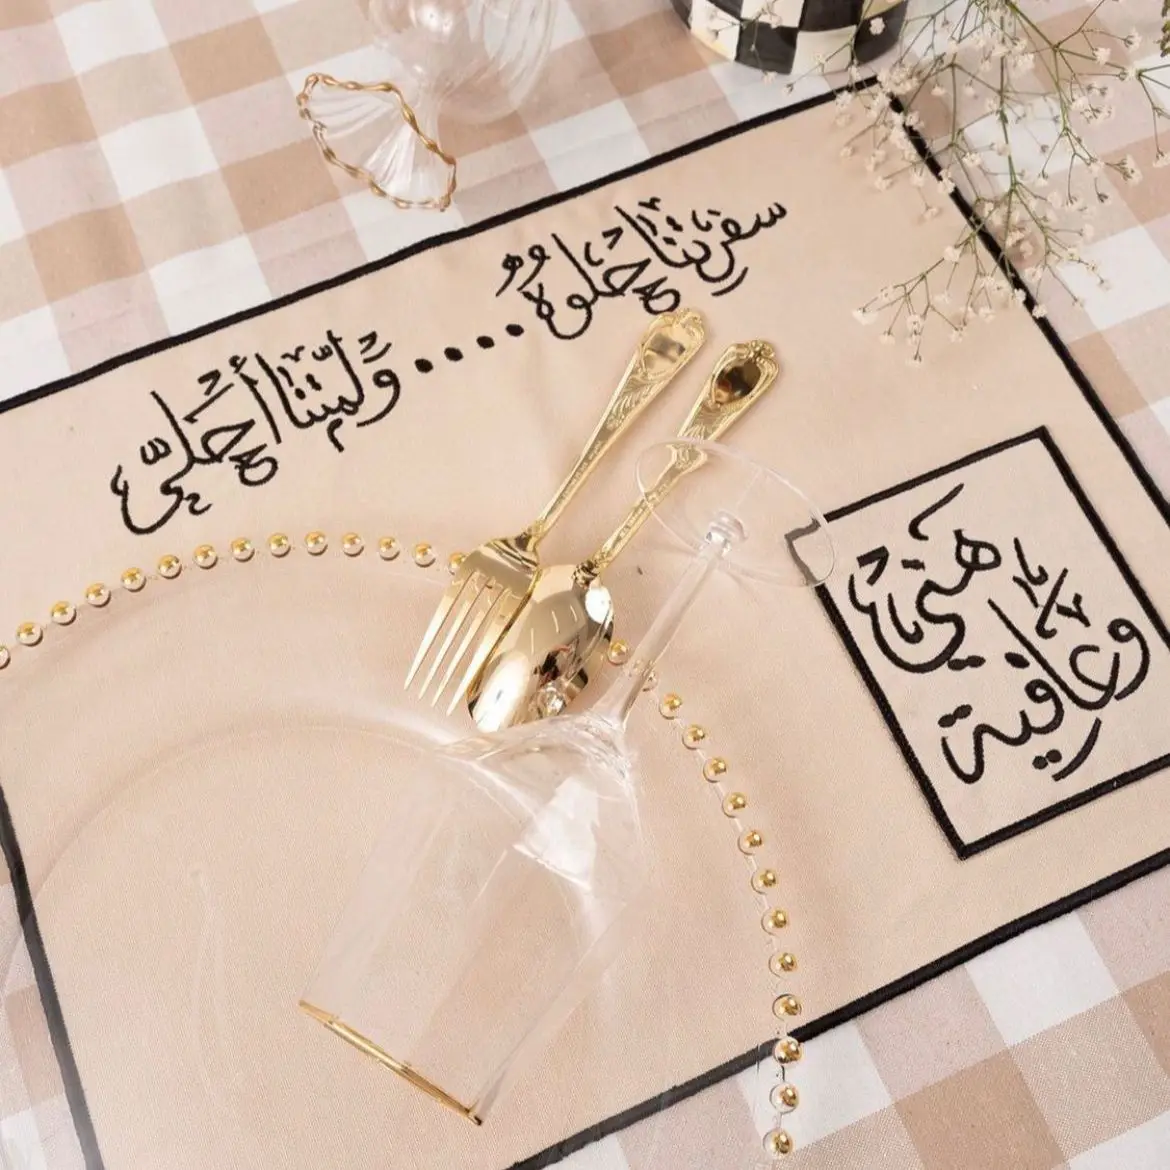 سفرتنا حلوة .... ولمتنا أحلى
هني
وعافية